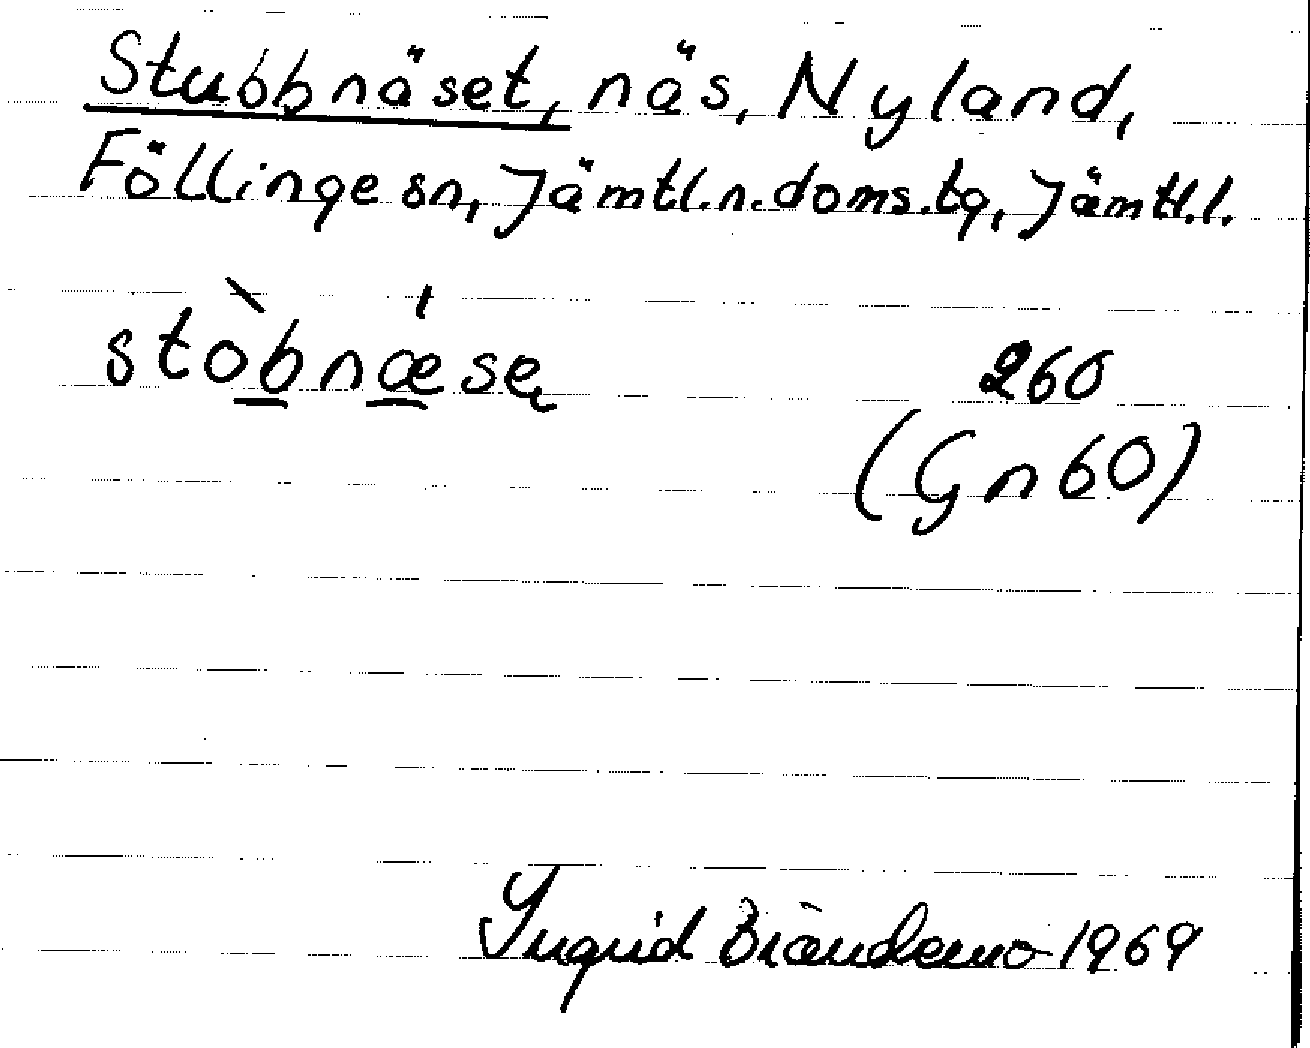 Stubbnäset, näs, Nyland,
Föllinge sn, Jämtl.n.doms.tg, Jämtl.l.
stòbnæ̍sę 260
(Gn 60)
Ingrid Brändemo 1969